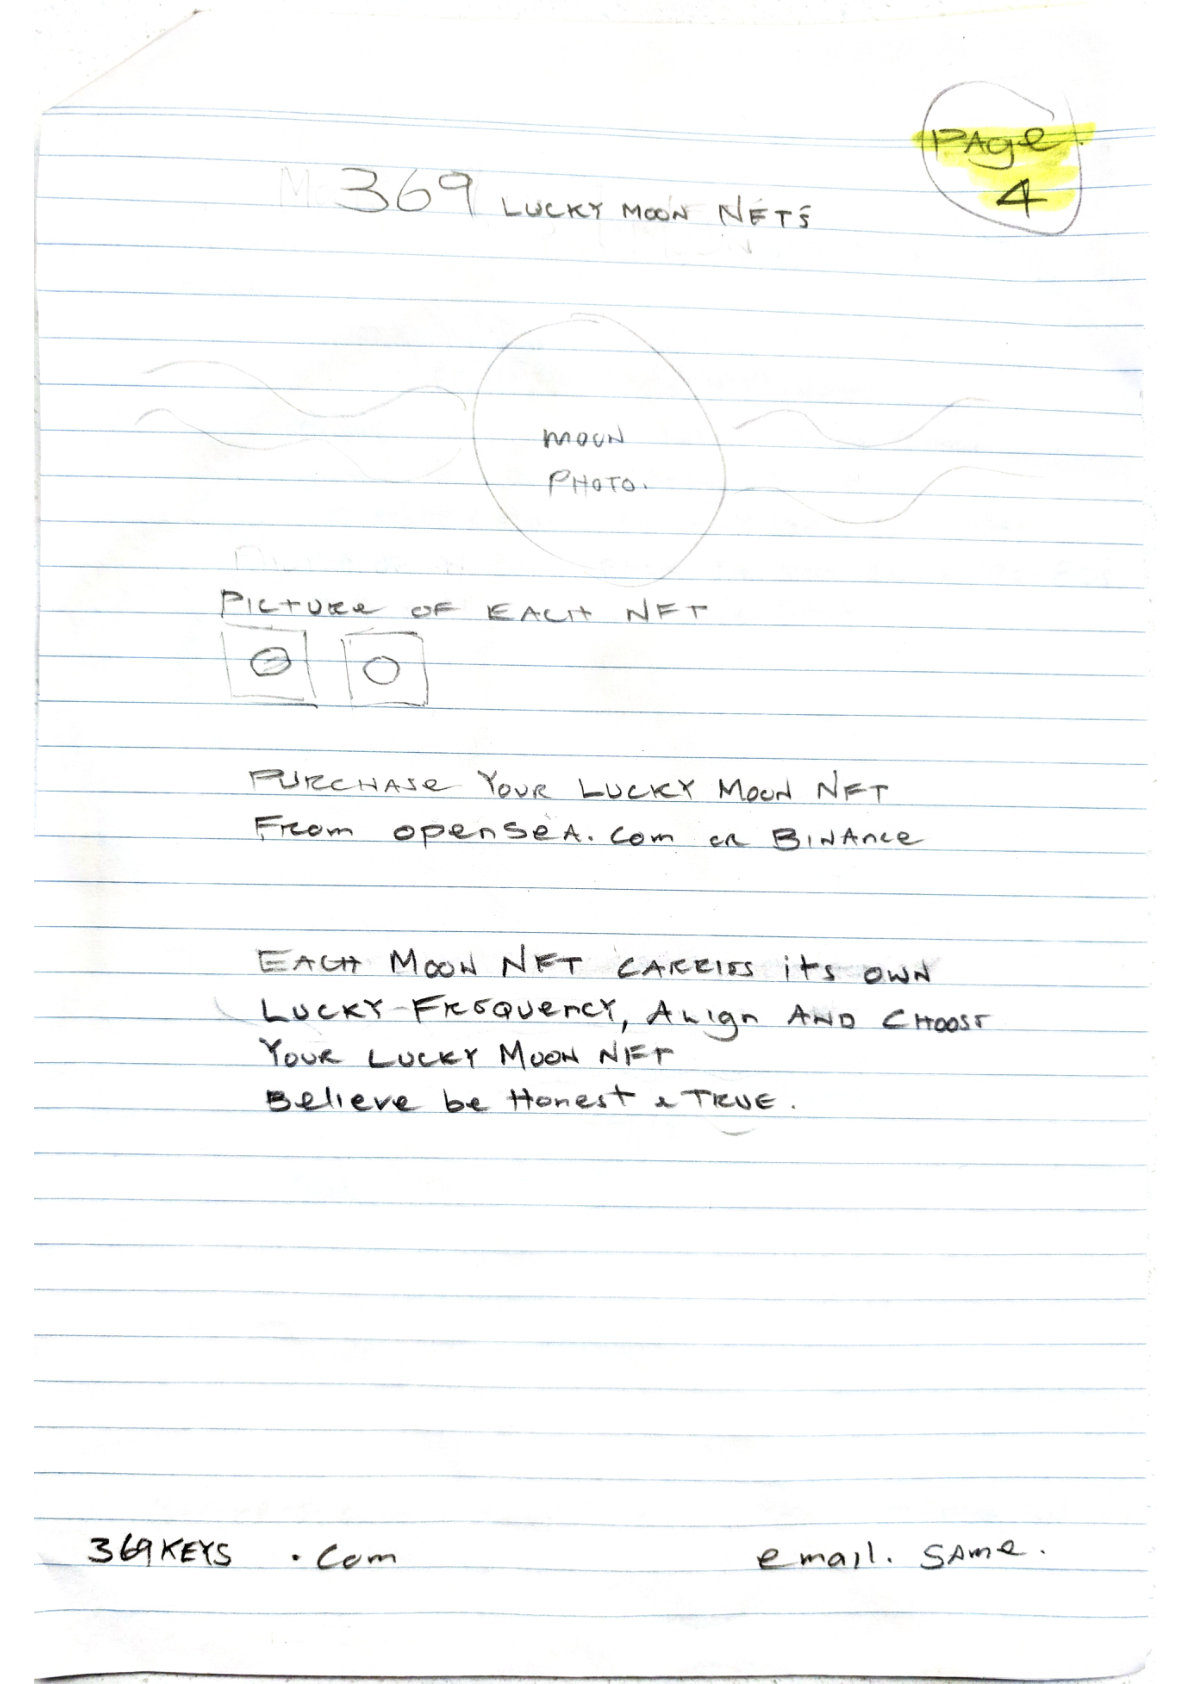 PAge
4
369 LUCKY MOON NFT'S
MOON
PHOTO.
PICTURE OF EACH NFT
PURCHASE YOUR LUCKY MOON NFT
From openSeA.com or BINANCE
EACH MOON NFT CARRIES iTS OWN
LUCKY-FREQUENCY, Align AND CHOOSE
YOUR LUCKY MOON NFT
Believe be Honest & TRUE.
369KEYS .Com
email. SAme.